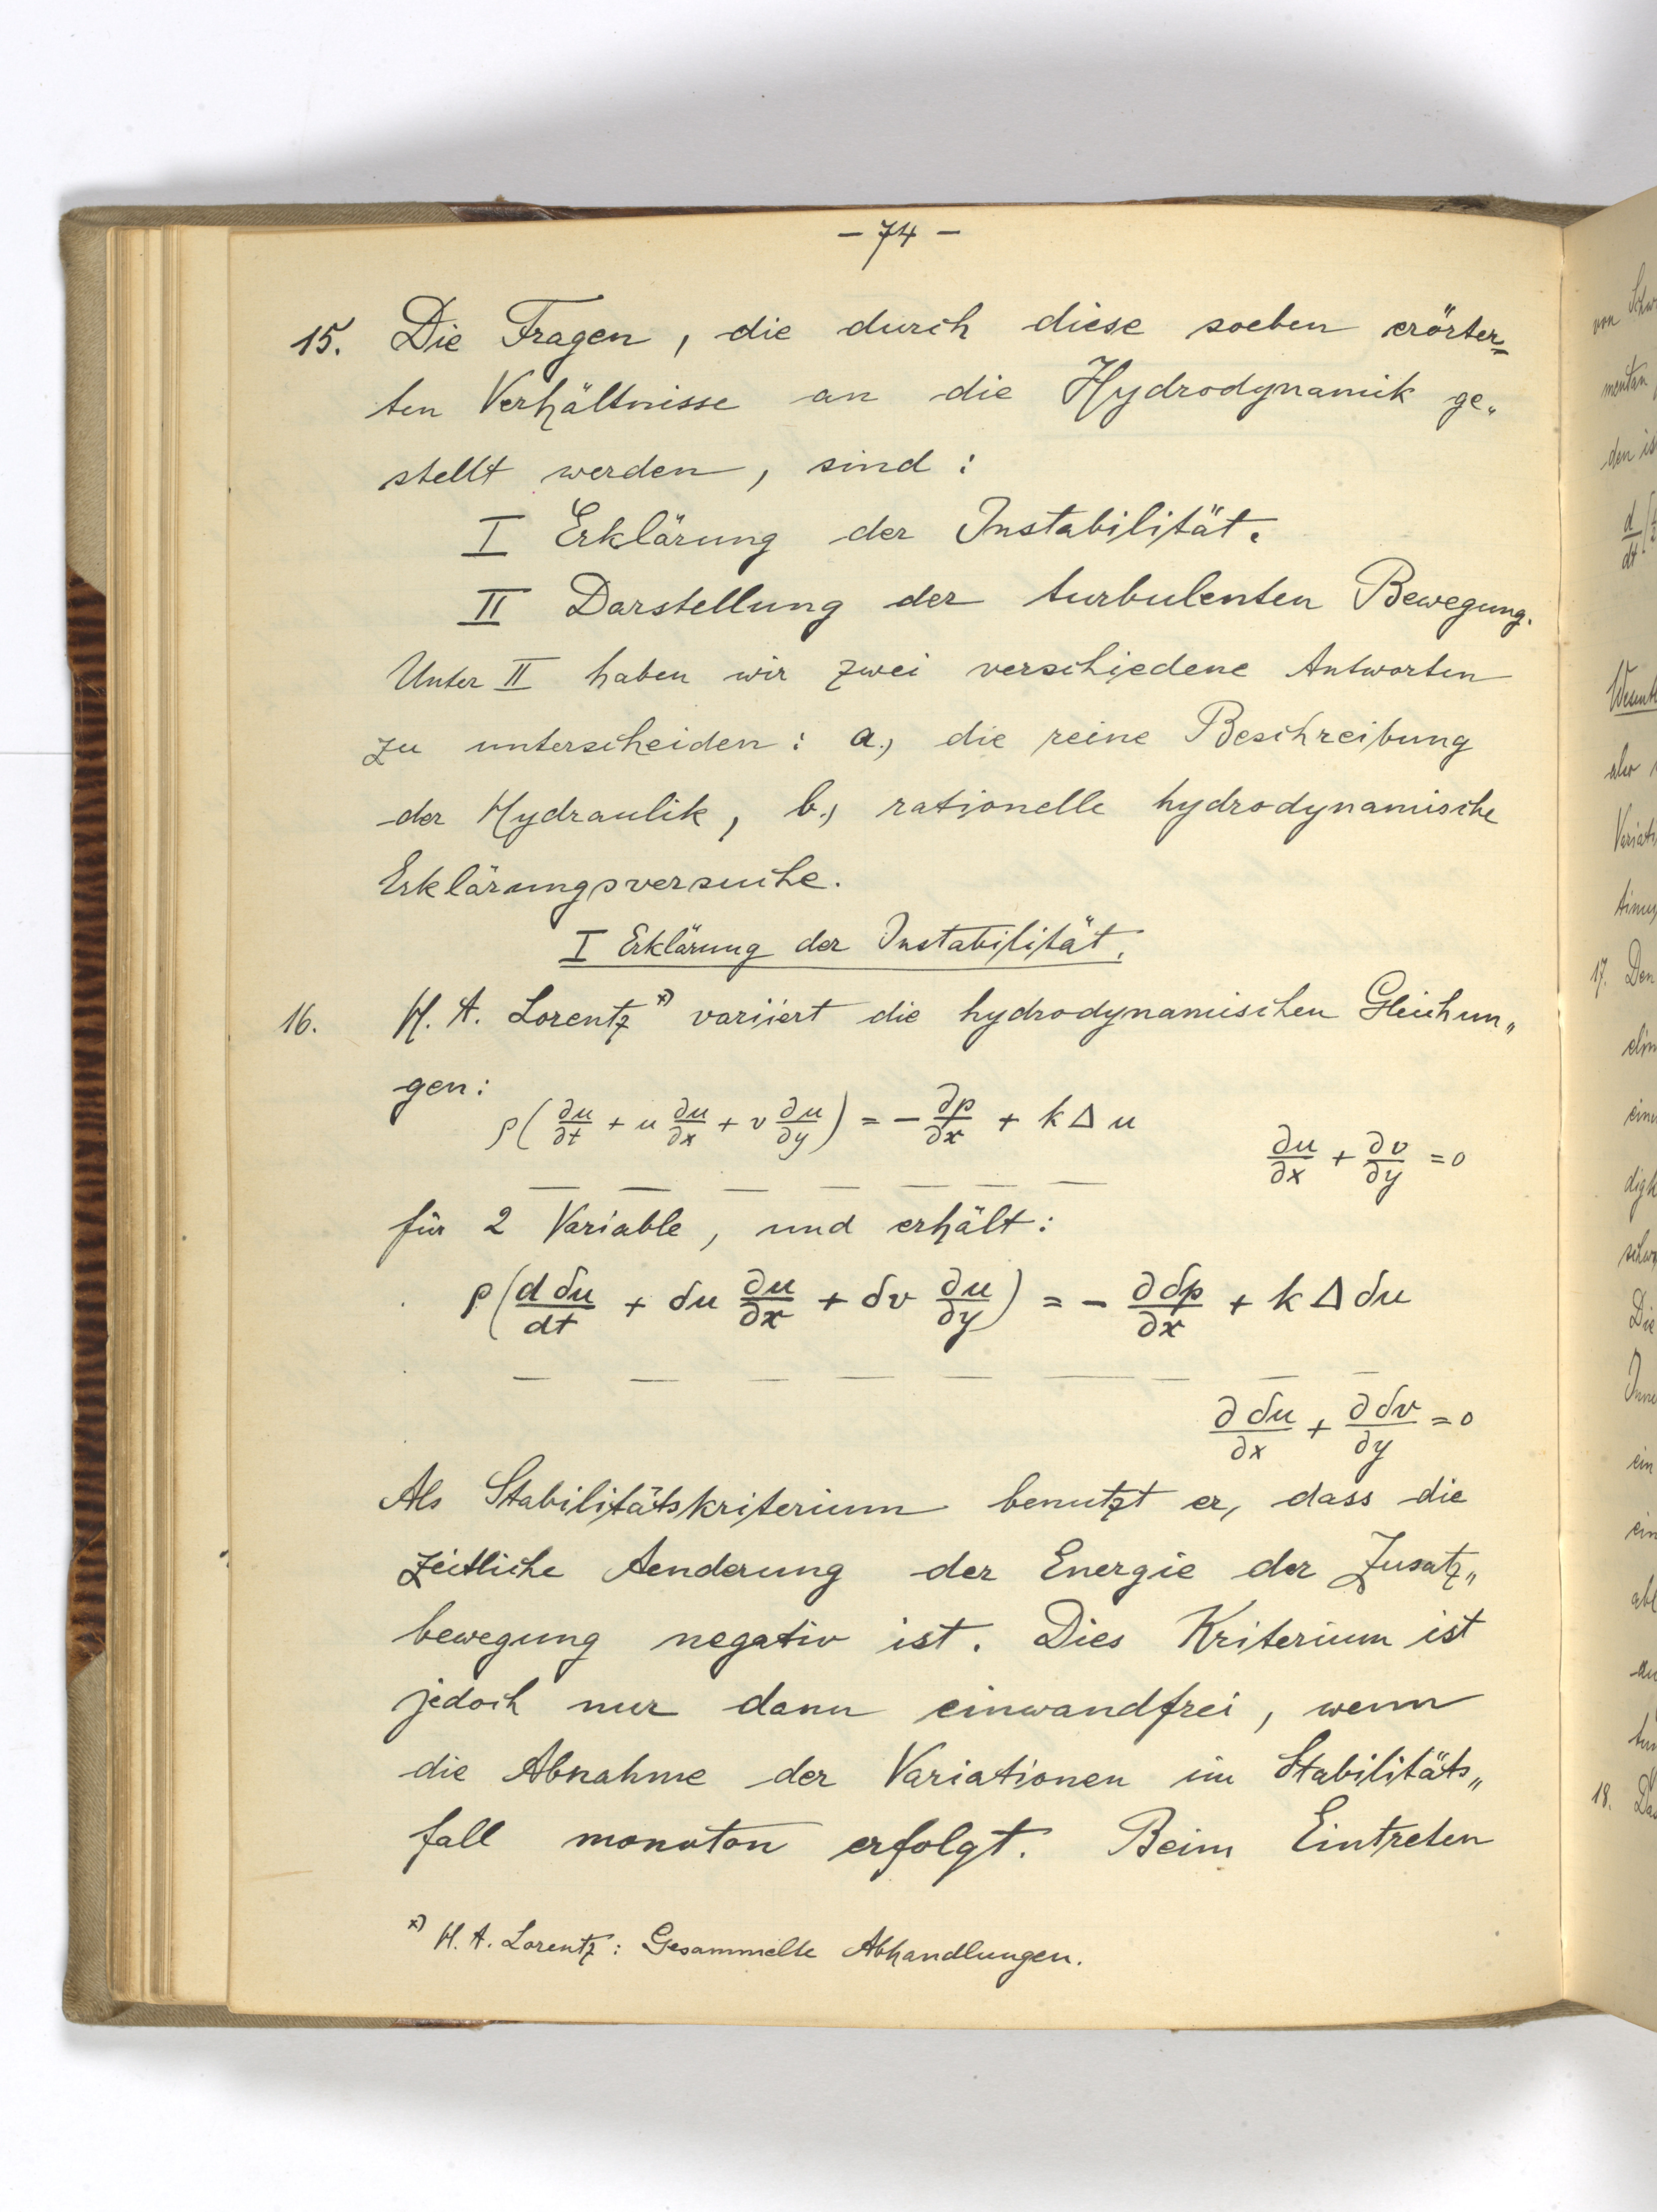 – 74 –
15. Die Fragen, die durch diese soeben erörter=
ten Verhältnisse an die Hydrodynamik ge„
stellt werden, sind:
I Erklärung der Instabilität.
II Darstellung der turbulenten Bewegung.
Unter II haben wir zwei verschiedene Antworten
zu unterscheiden: a., die reine Beschreibung
der Hydraulik, b., rationelle hydrodynamische
Erklärungsversuche.
I Erklärung der Instabilität.
16. H. A. Lorentz *) variiert die hydrodynamischen Gleichun„
gen:
ρ(∂u/∂t + u ∂u/∂x + v ∂u/∂y) = − ∂p/∂x + k Δ u
∂u/∂x + ∂v/∂y = 0
— — — — — — —
für 2 Variable, und erhält:
ρ(d δu/dt + δu ∂u/∂x + δv ∂u/∂y) = − ∂ δp/∂x + k Δ δu
— — — — — — — — —
∂ δu/∂x + ∂ δv/∂y = 0
Als Stabilitätskriterium benutzt er, dass die
zeitliche Aenderung der Energie der Zusatz„
bewegung negativ ist. Dies Kriterium ist
jedoch nur dann einwandfrei, wenn
die Abnahme der Variationen im Stabilitäts„
fall monoton erfolgt. Beim Eintreten
*) H. A. Lorentz: Gesammelte Abhandlungen.
17. Den
18.